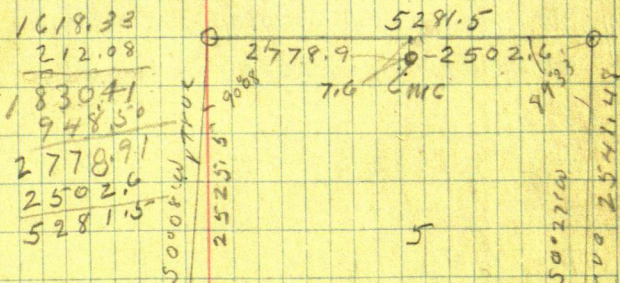 1618.33
212.08
1830.41
948.50
2778.91
2502.6
5281.5
5281.5
2778.9
2502.6
7.6
MC
90°08'
89°33'
S0°08'W
TRUE
2525.5
5
S0°27'W
2541.48